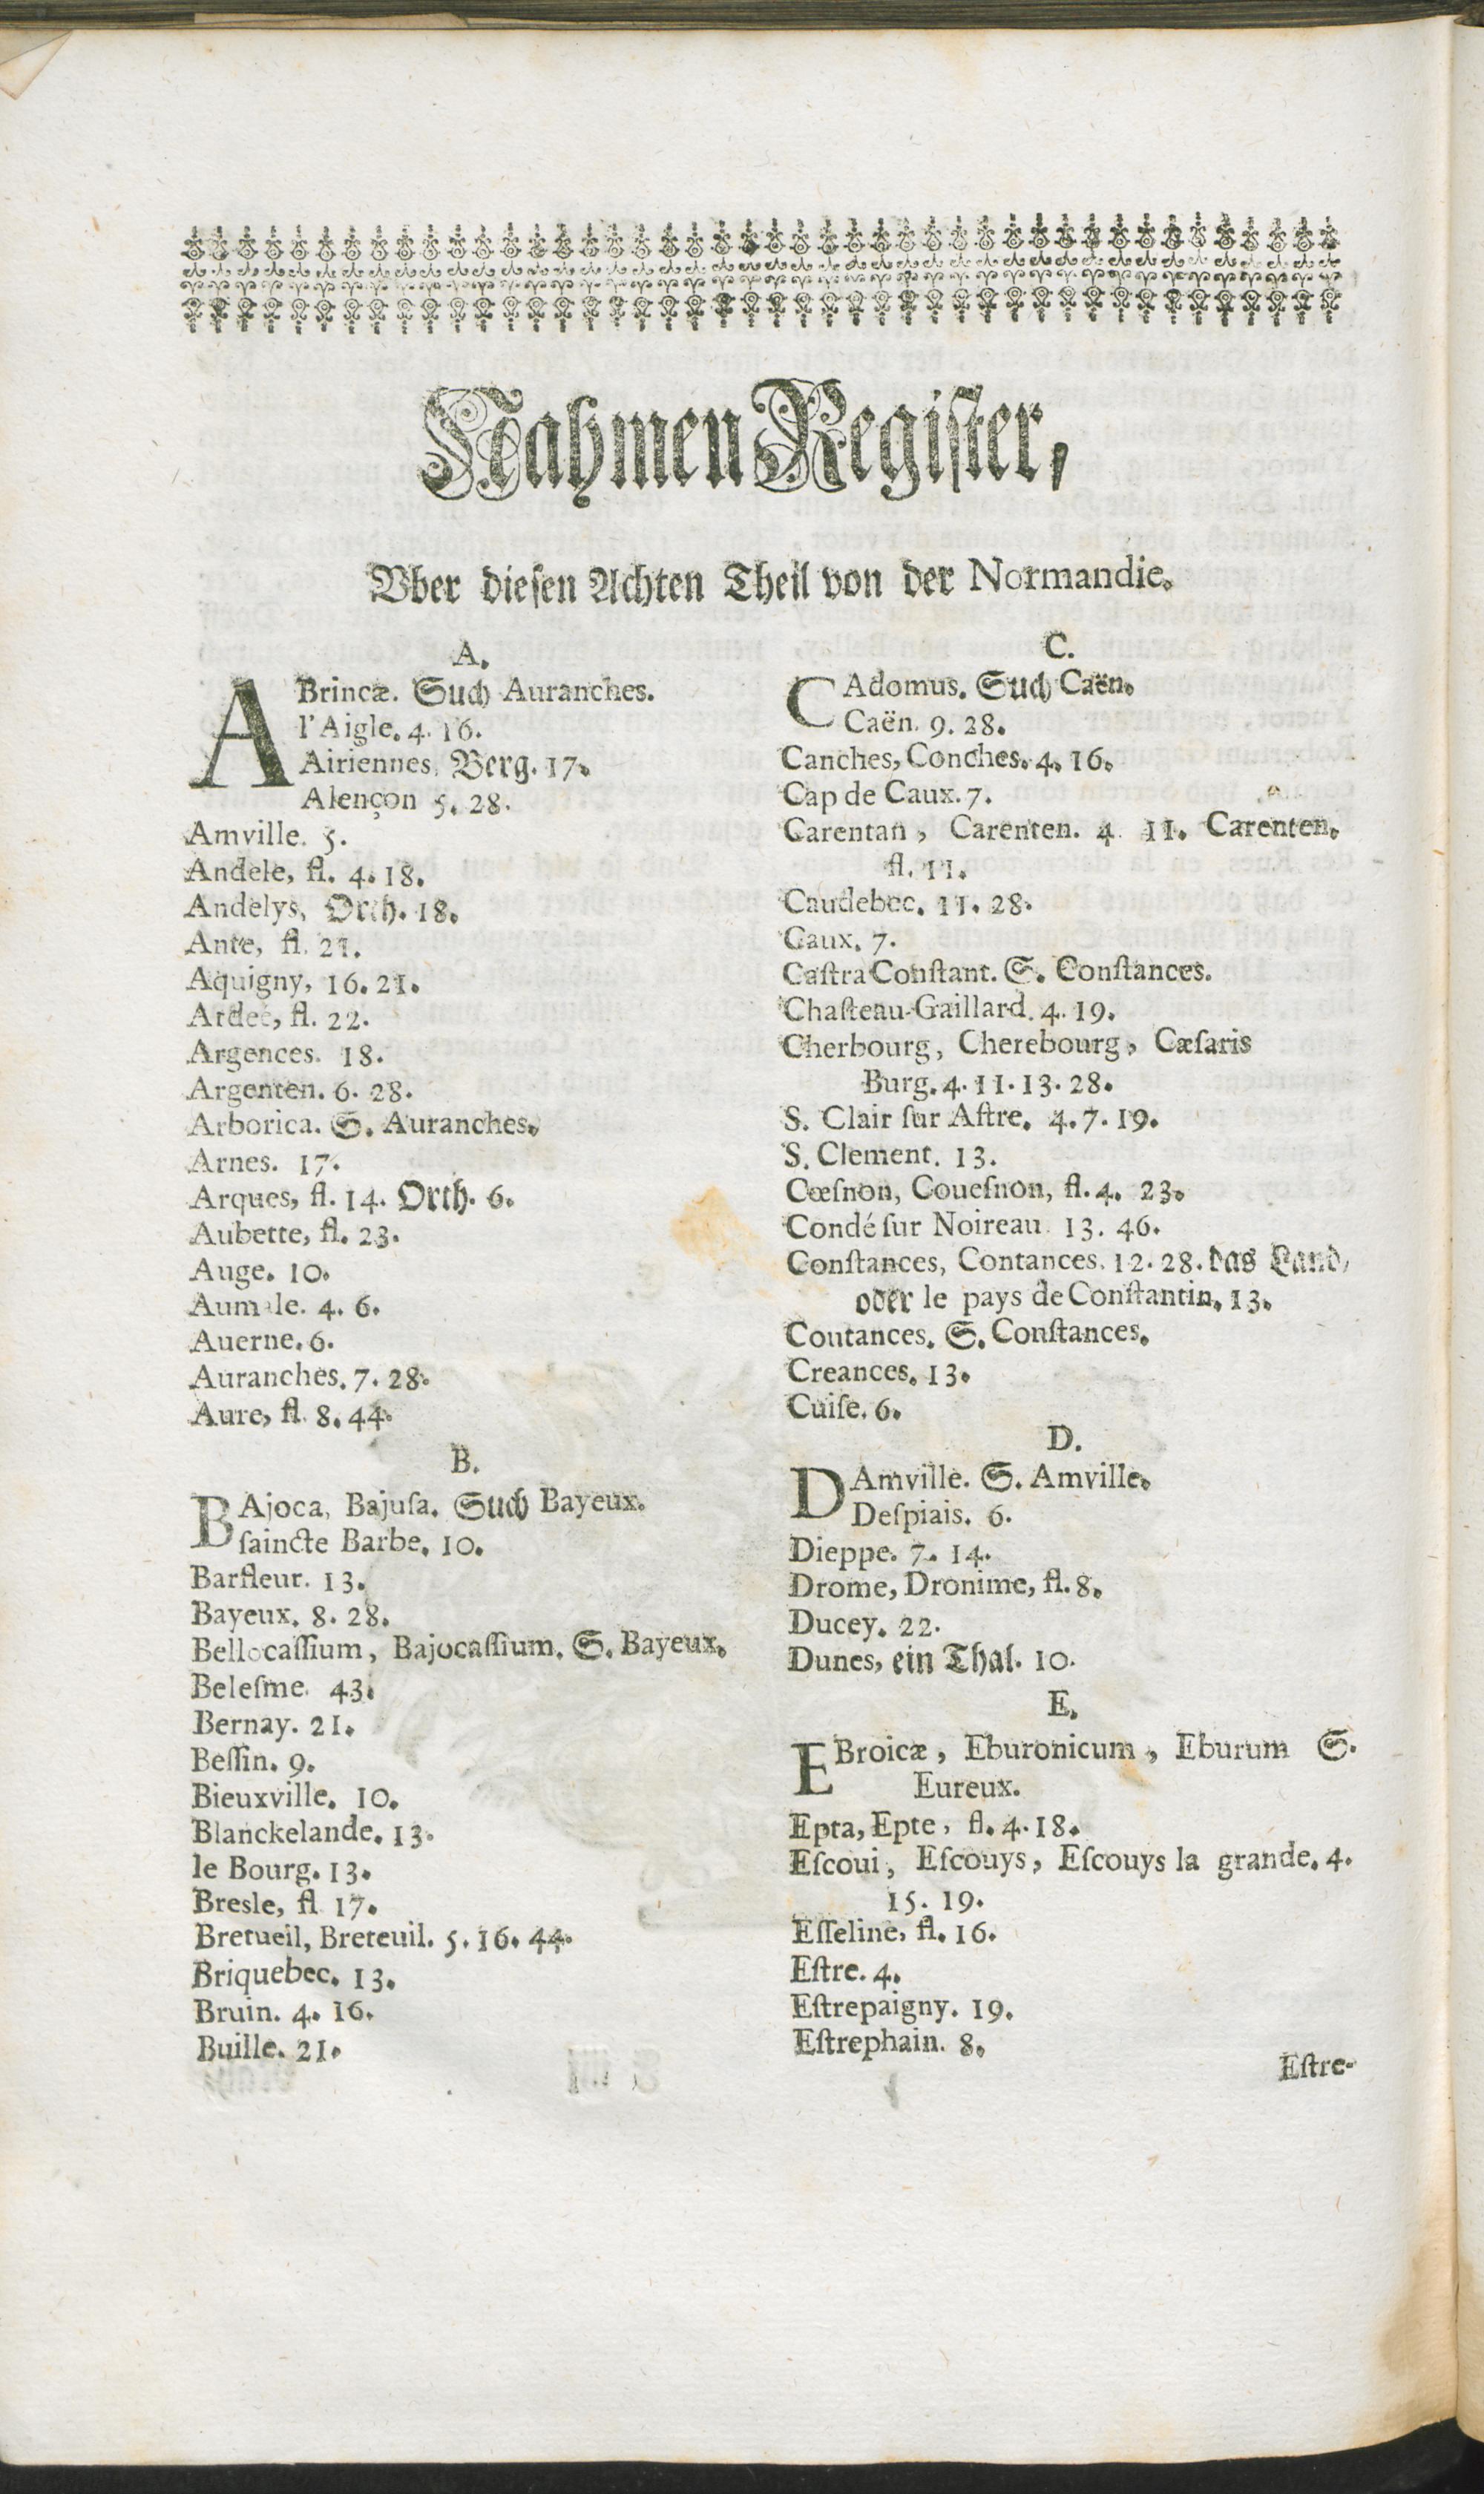 Nahmen Register,
Vber diesen Achten Theil von der Normandie.
A.
ABrincæ. Such Auranches.
l'Aigle. 4. 16.
Airiennes, Berg. 17.
Alençon 5. 28.
Amville. 5.
Andele, fl. 4. 18.
Andelys, Orth. 18.
Ante, fl. 21.
Aquigny, 16. 21.
Ardeé, fl. 22.
Argences. 18.
Argenten. 6. 28.
Arborica. S. Auranches.
Arnes. 17.
Arques, fl. 14. Orth. 6.
Aubette, fl. 23.
Auge. 10.
Aumale. 4. 6.
Auerne. 6.
Auranches. 7. 28.
Aure, fl. 8. 44.
B.
BAjoca, Bajusa. Such Bayeux.
ſaincte Barbe. 10.
Barfleur. 13.
Bayeux. 8. 28.
Bellocaſſium, Bajocaſſium. S. Bayeux.
Beleſme. 43.
Bernay. 21.
Beſſin. 9.
Bieuxville. 10.
Blanckelande. 13.
le Bourg. 13.
Bresle, fl. 17.
Bretueil, Breteuil. 5. 16. 44.
Briquebec. 13.
Bruin. 4. 16.
Buille. 21.
C.
CAdomus. Such Caën.
Caën. 9. 28.
Canches, Conches. 4. 16.
Cap de Caux. 7.
Carentan, Carenten. 4. 11. Carenten.
fl. 11.
Caudebec. 11. 28.
Caux. 7.
Caſtra Conſtant. S. Conſtances.
Chaſteau-Gaillard. 4. 19.
Cherbourg, Cherebourg, Cæſaris
Burg. 4. 11. 13. 28.
S. Clair ſur Aſtre. 4. 7. 19.
S. Clement. 13.
Cœſnon, Coueſnon, fl. 4. 23.
Condé ſur Noireau. 13. 46.
Conſtances, Contances. 12. 28. das Land,
oder le pays de Conſtantin. 13.
Coutances. S. Conſtances.
Creances. 13.
Cuiſe. 6.
D.
DAmville. S. Amville.
Deſpiais. 6.
Dieppe. 7. 14.
Drome, Dronime, fl. 8.
Ducey. 22.
Dunes, ein Thal. 10.
E.
EBroicæ, Eburonicum, Eburum S.
Eureux.
Epta, Epte, fl. 4. 18.
Eſcoui, Eſcouys, Eſcouys la grande. 4.
15. 19.
Eſſeline, fl. 16.
Eſtre. 4.
Eſtrepaigny. 19.
Eſtrephain. 8.
Eſtre-